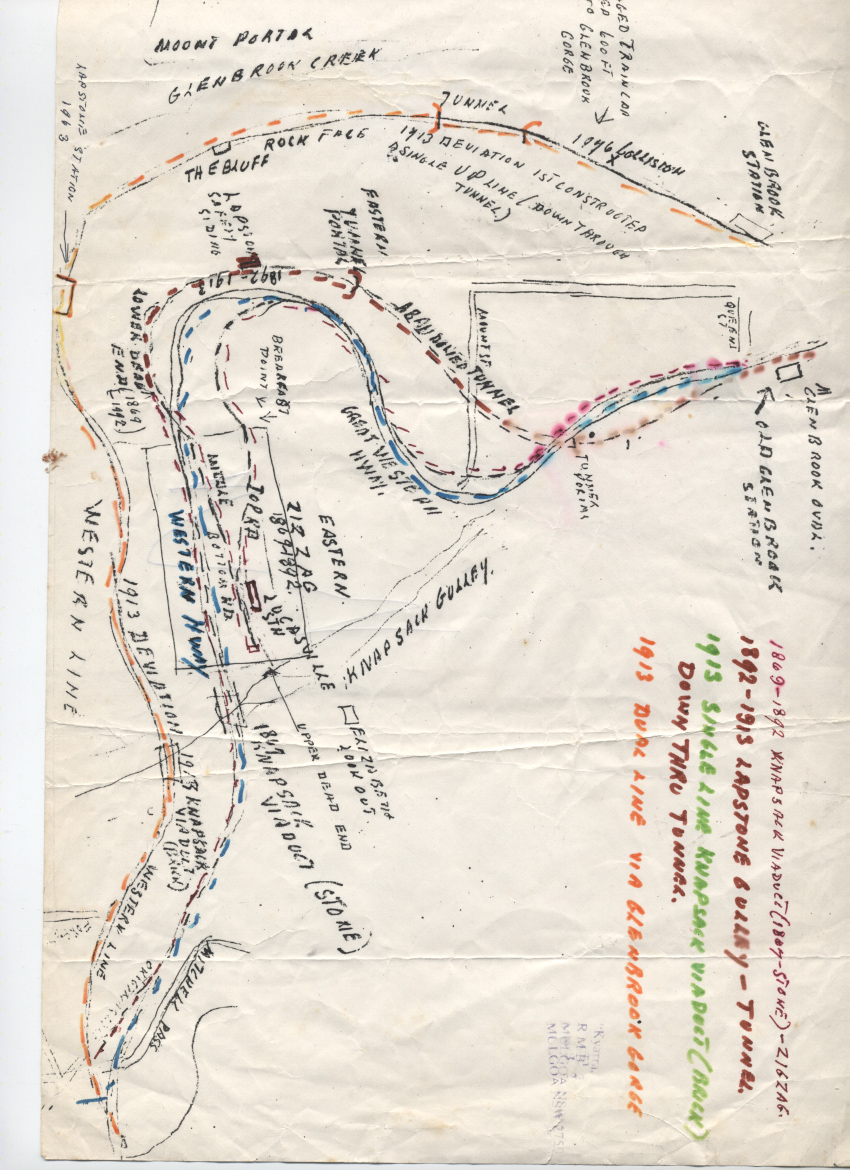 MOUNT PORTAL
GLENBROOK CREEK
LAPSTONE STATION
1963
ROCK FACE
THE BLUFF
TUNNEL
1913 DEVIATION 1ST CONSTRUCTED
A SINGLE UP LINE (DOWN THROUGH
TUNNEL)
600 FT
TO GLENBROOK
GORGE
COLLISION
GLENBROOK
STATION
EASTERN
TUNNEL
PORTAL
SIDING
1892-1913
ABANDONED TUNNEL
LOWER DEAD
END (1869
1892)
BREAKFAST
POINT
GREAT WESTERN
HWY.
MOUNT ST
QUEENS
ST
TUNNEL
PORTAL
OLD GLENBROOK
STATION
GLENBROOK OVAL.
N
EASTERN
ZIG ZAG
1869-1892.
TOP RD
MIDDLE
BOTTOM RD.
WESTERN HWAY
LUCASVILLE
STN
KNAPSACK GULLEY.
UPPER DEAD END
LOOK OUT.
KNAPSACK
VIADUCT (STONE)
WESTERN LINE
1913 DEVIATION
1913 KNAPSACK
VIADUCT
WESTERN LINE
MITCHELL PASS
1869-1892 KNAPSACK VIADUCT (1867-STONE)-ZIGZAG.
1892-1913 LAPSTONE GULLEY-TUNNEL.
1913 SINGLE LINE KNAPSACK VIADUCT (BRICK)
DOWN THRU TUNNEL.
1913 DUAL LINE VIA GLENBROOK GORGE
R.M.B.
MULGOA